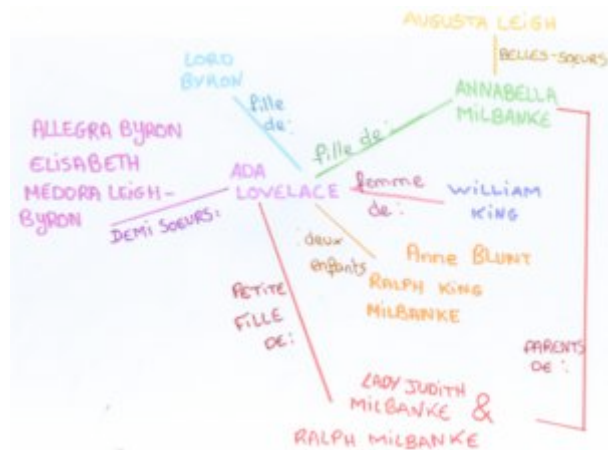 AUGUSTA LEIGH
BELLES-SOEURS
LORD
BYRON
fille
de:
ANNABELLA
MILBANKE
fille de:
ALLEGRA BYRON
ELISABETH
MÉDORA LEIGH-
BYRON
DEMI SOEURS:
ADA
LOVELACE
femme
de:
WILLIAM
KING
deux
enfants
Anne BLUNT
RALPH KING
MILBANKE
PETITE
FILLE
DE:
PARENTS
DE:
LADY JUDITH
MILBANKE &
RALPH MILBANKE